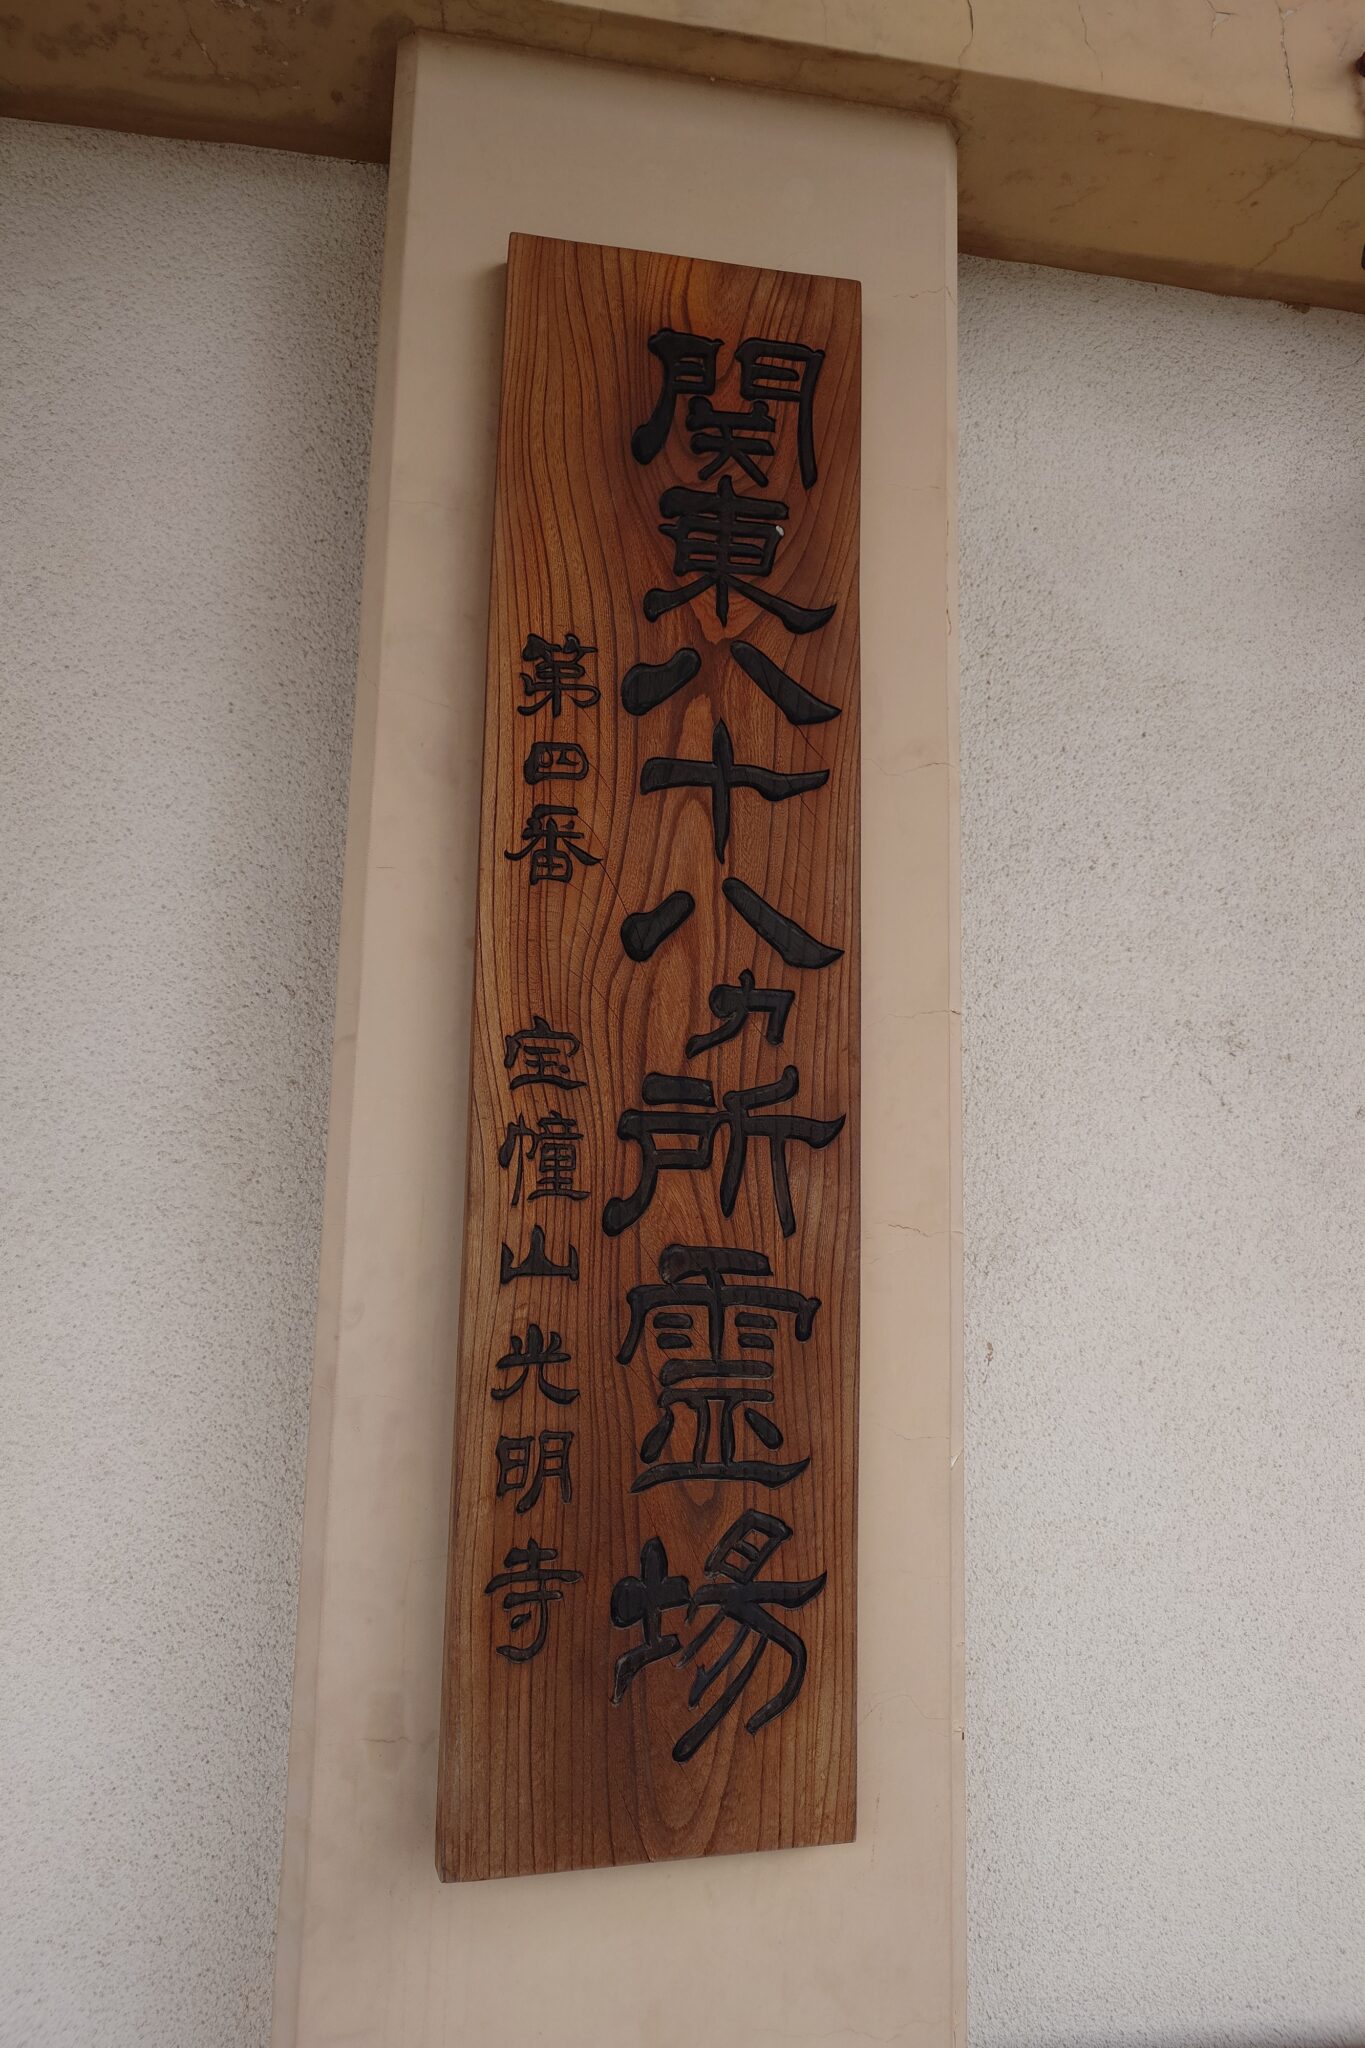 関東八十八ヵ所霊場
第四番 宝幢山光明寺